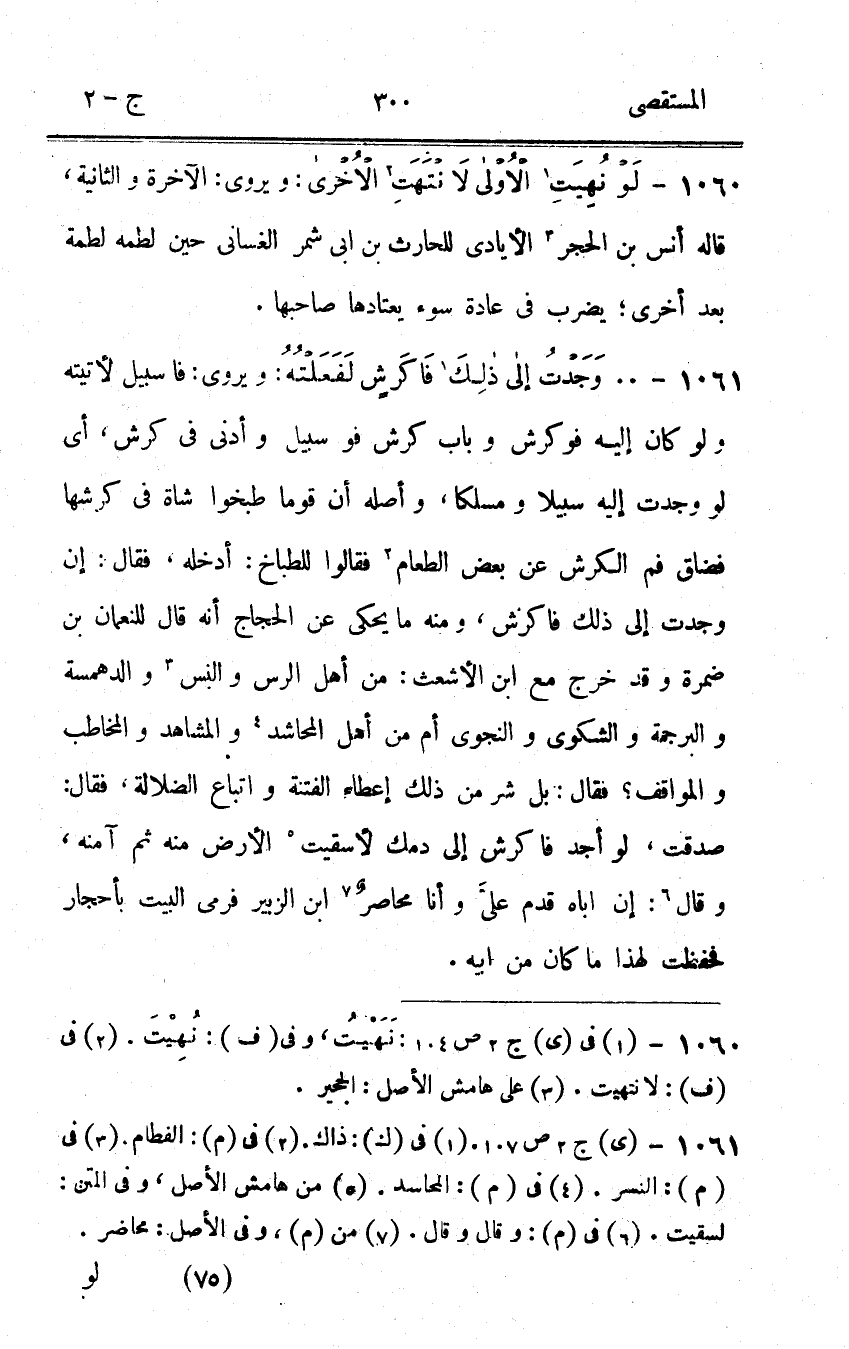 المستقصى ٣٠٠ ج – ٢
١٠٦٠ – لَوْ نُهِيَتِ١ الْأُوْلٰى لَا نْتَهَتِ٢ الْأُخْرىٰ: و يروى: الآخرة و الثانية،
قاله أنس بن الحجر٣ الأيادى للحارث بن ابى شمر الغسانى حين لطمه لطمة
بعد أخرى؛ يضرب فى عادة سوء يعتادها صاحبها .
١٠٦١ – ٠٠ وَجَدْتُ إِلٰى ذٰلِكَ١ فَاكَرِشٍ لَفَعَلْتُهُ: و يروى: فا سبيل لأتيته
و لو كان إليه فوكرش و باب كرش فو سبيل و أدنى فى كرش، أى
لو وجدت إليه سبيلا و مسلكا، و أصله أن قوما طبخوا شاة فى كرشها
فضاق فم الكرش عن بعض الطعام٢ فقالوا للطباخ: أدخله، فقال: إن
وجدت إلى ذلك فا كرش، و منه ما يحكى عن الحجاج أنه قال للنعمان بن
ضمرة و قد خرج مع ابن الأشعث: من أهل الرس و النس٣ و الدهمسة
و البرجمة و الشكوى و النجوى أم من أهل المحاشد٤ و المشاهد و المخاطب
و المواقف؟ فقال: بل شر من ذلك إعطاء الفتنة و اتباع الضلالة، فقال:
صدقت، لو أجد فا كرش إلى دمك لأسقيت٥ الأرض منه ثم آمنه،
و قال٦: إن اباه قدم علىَّ و أنا محاصرٌ٧ ابن الزبير فرمى البيت بأحجار
فحفظت لهذا ما كان من ابيه .
١٠٦٠ – (١) فى (ى) ج ٢ ص ١٠٤: نَهَيْتُ، و فى (ف): نُهِيْتَ . (٢) فى
(ف): لا نتهيت . (٣) على هامش الأصل: الحجير .
١٠٦١ – (ى) ج ٢ ص ١٠٧. (١) فى (ك): ذاك. (٢) فى (م): الفطام. (٣) فى
(م): النسر . (٤) فى (م): المحاسد . (٥) من هامش الأصل، و فى المتن:
لسقيت . (٦) فى (م): و قال و قال . (٧) من (م)، و فى الأصل: محاضر .
(٧٥) لو